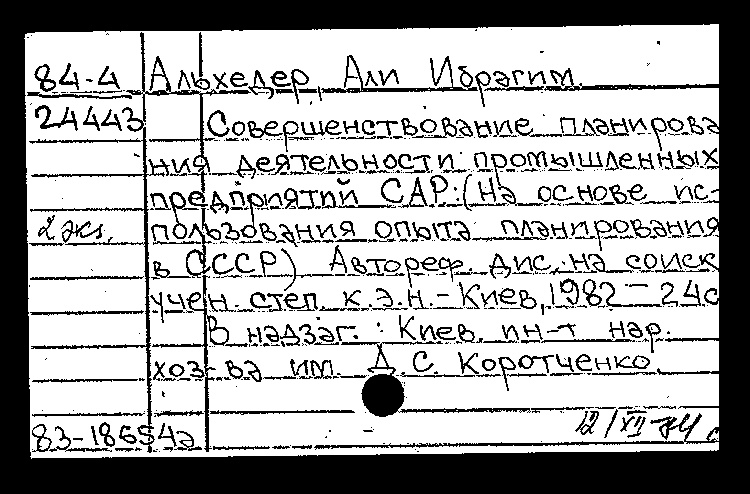 84-4 Альхедер, Али Ибрагим.
24443 Совершенствование планирова
ния деятельности промышленных
предприятий САР: (На основе ис-
2 экз. пользования опыта планирования
в СССР) Автореф. дис. на соиск
учен. степ. к.э.н. - Киев, 1982 - 24с
В надзаг.: Киев. ин-т нар.
хоз-ва им. Д.С. Коротченко.
83-18654а 12/XII-84